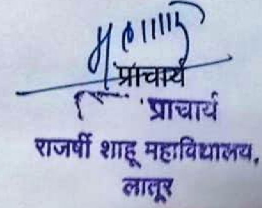 प्राचार्य
प्राचार्य
राजर्षी शाहू महाविद्यालय,
लातूर